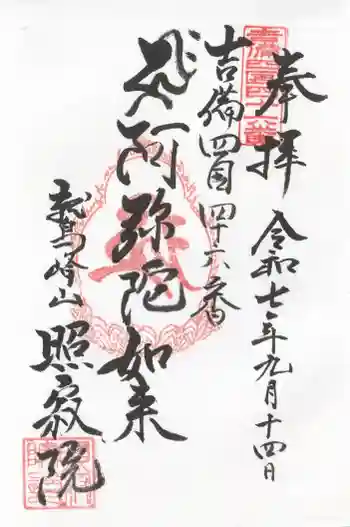 奉拝
令和七年九月十四日
吉備四国四十六番
阿弥陀如来
照寂院